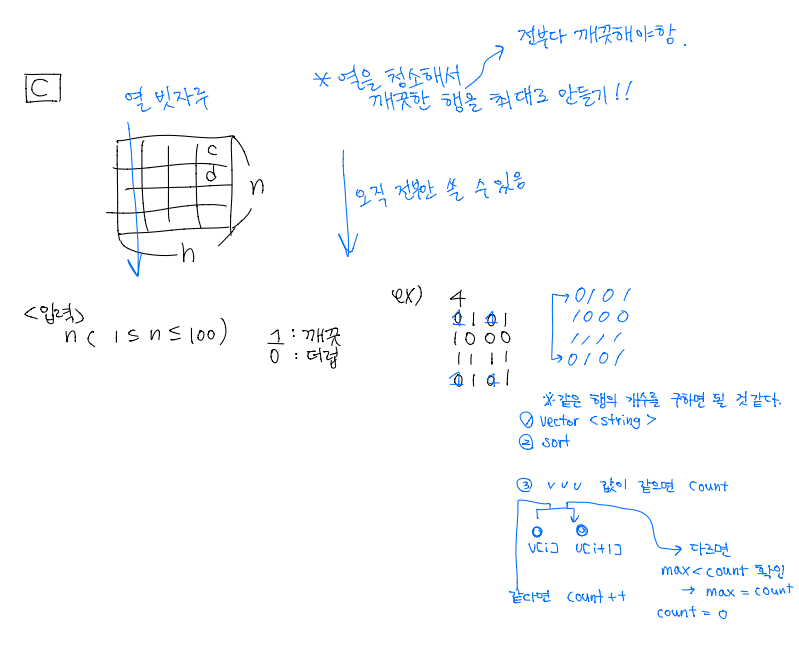 C
열 빗자루
c
d
n
n
전부다 깨끗해야함.
* 열을 청소해서
깨끗한 행을 최대로 만들기!!
오직 전부만 쓸 수 있음
<입력>
n ( 1 ≤ n ≤ 100 )
1 : 깨끗
0 : 더럽
ex)
4
0101
1000
1111
0101
0101
1000
1111
0101
※ 같은 행의 개수를 구하면 될 것 같다.
① vector <string>
② sort
③ v v v 값이 같으면 count
v[i] v[i+1]
같다면 count++
→ 다르면
max < count 확인
→ max = count
count = 0